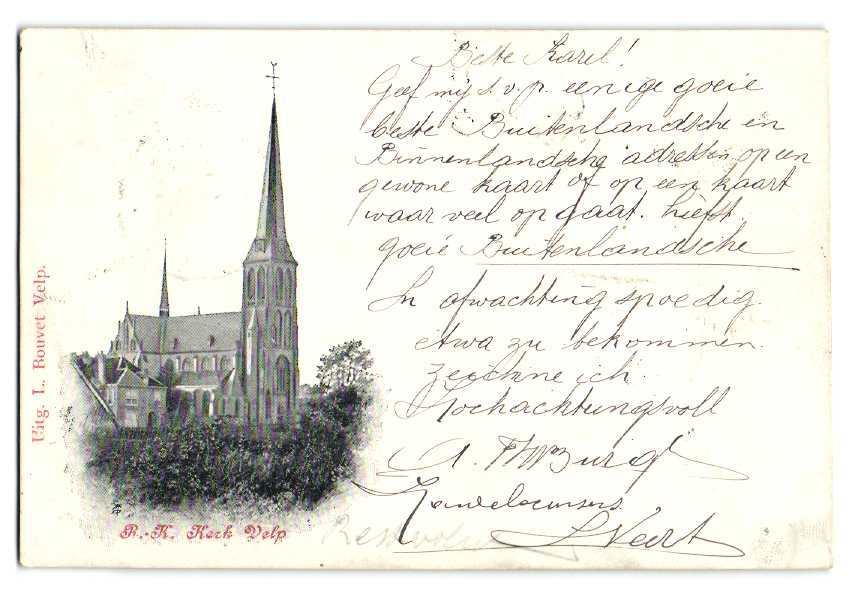 Beste Karel!
Geef mij s.v.p. eenige goeie
beste Buitenlandsche en
Binnenlandsche adressen op een
gewone kaart of op een kaart
waar veel op gaat. liefst
goeie Buitenlandsche
In afwachting spoedig
etwa zu bekommen
zeichne ich
Hochachtungsvoll
A.
Weert
Uitg. L. Bouvet Velp.
R.-K. Kerk Velp